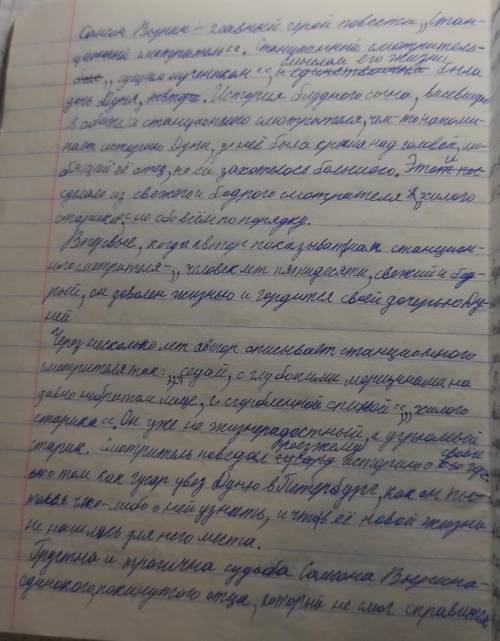 Самсон Вырин - главный герой повести ,,Стан-
ционный смотритель". Станционный смотритель-
смыслом его жизни
,,сущим мучеником" и была
дочь Дуня, . История блудного сына, висевшая
в обители станционного смотрителя, чем-то напоми-
нает историю Дуни, у неё была крыша над головой, лю-
бящий её отец, но ей захотелось большего. Это и
сделало из свежего и бодрого смотрителя ,,хилого
старика", но обо всём по порядку.
Впервые, когда автор показывает нам станцион-
ного смотрителя-,, человек лет пятидесяти, свежий и бод-
рый, он доволен жизнью и гордится своей дочерью Ду-
ней
Через несколько лет автор описывает станционного
смотрителя так: ,,седой, с глубокими морщинами на
давно небритом лице, с сгорбленной спиной", ,,хилого
старика". Он уже не жизнерадостный, а угрюмый
старик. Смотритель поведал проезжему историю о своём
о том как гусар увёз Дуню в Петербург, как он пы-
тался что-либо о ней узнать, и что в её новой жизни
не нашлось для него места.
Грустна и трагична судьба Самсона Вырина-
одинокого, покинутого отца, который не смог справится